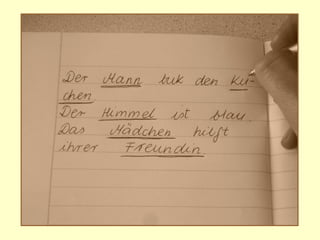 Der Mann buk den Ku-
chen
Der Himmel ist blau.
Das Mädchen hilft
ihrer Freundin.